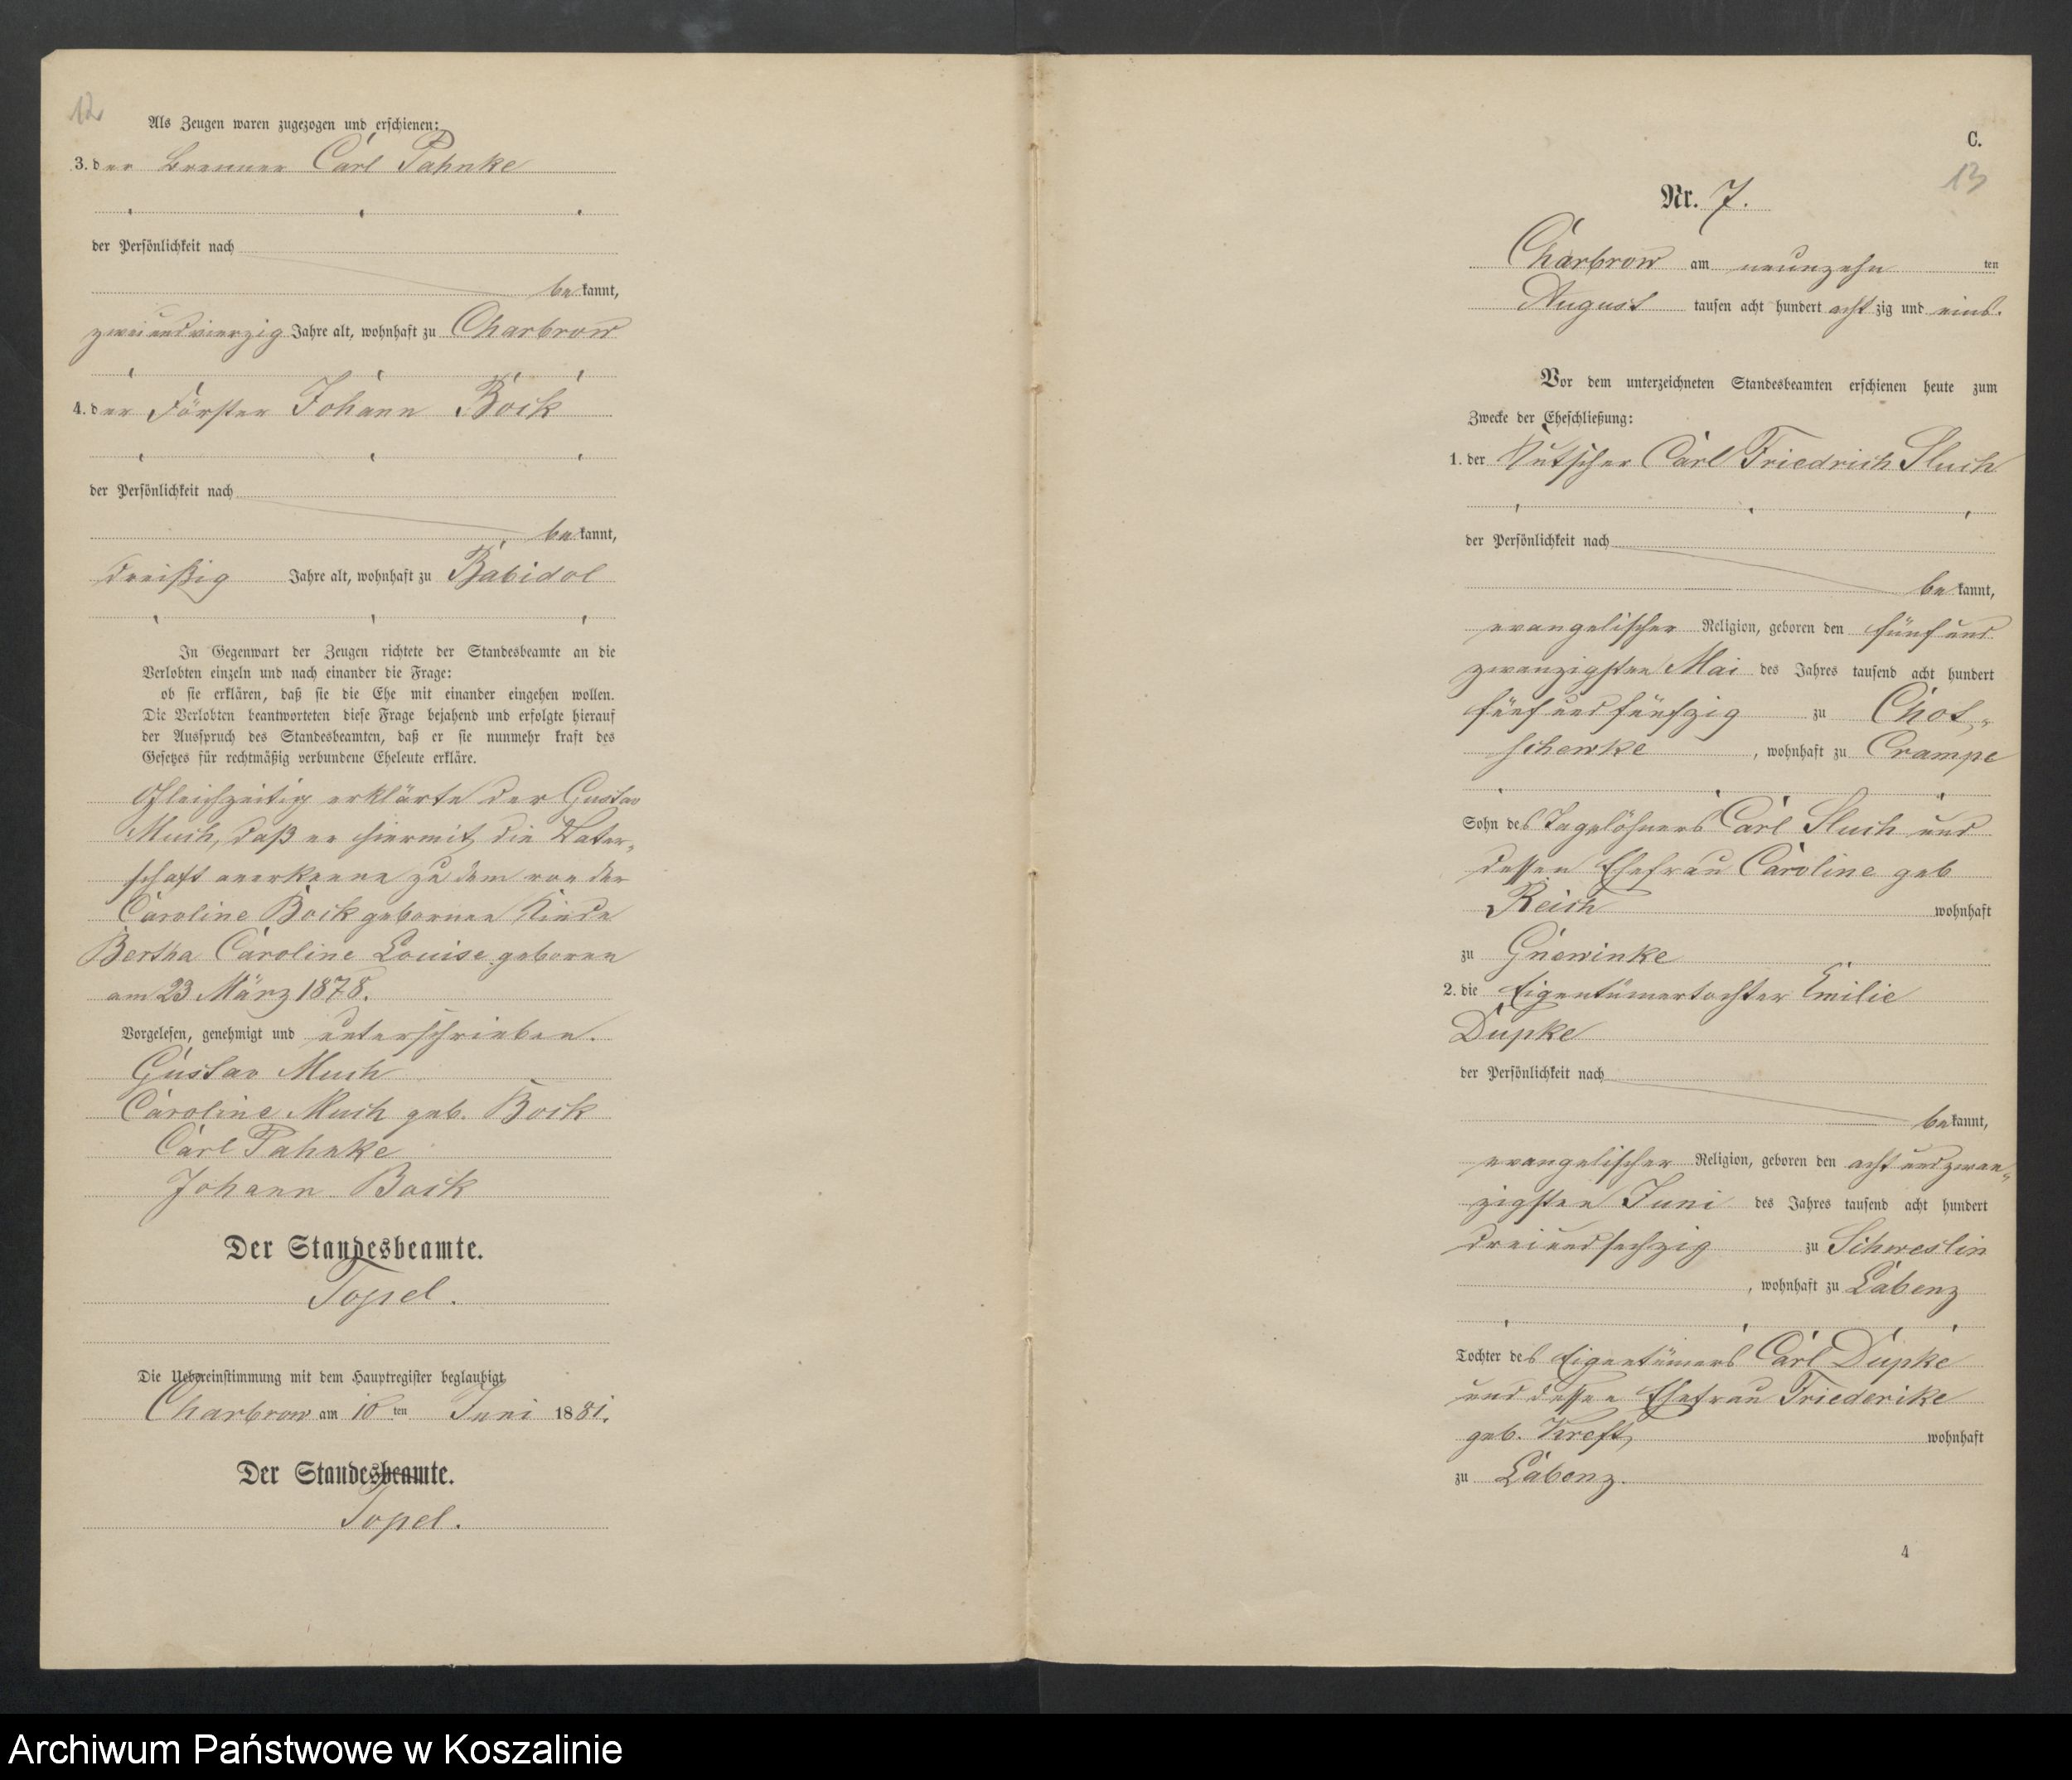 12
Als Zeugen waren zugezogen und erschienen:
3. der Brenner Carl Pahnke
der Persönlichkeit nach
bekannt,
zweiundvierzig Jahre alt, wohnhaft zu Charbrow
4. der Förster Johann Bock
der Persönlichkeit nach
bekannt,
dreißig Jahre alt, wohnhaft zu Babidol
In Gegenwart der Zeugen richtete der Standesbeamte an die
Verlobten einzeln und nach einander die Frage:
ob sie erklären, daß sie die Ehe mit einander eingehen wollen.
Die Verlobten beantworteten diese Frage bejahend und erfolgte hierauf
der Ausspruch des Standesbeamten, daß er sie nunmehr kraft des
Gesetzes für rechtmäßig verbundene Eheleute erkläre.
Gleichzeitig erklärte der Gustav
Much, daß er hiermit die Vater-
schaft anerkenne zu dem von der
Caroline Bock gebornen Kinde
Bertha Caroline Louise geboren
am 23 März 1878.
Vorgelesen, genehmigt und unterschrieben.
Gustav Much
Caroline Much geb. Bock
Carl Pahnke
Johann Bock
Der Standesbeamte.
Topel.
Die Uebereinstimmung mit dem Hauptregister beglaubigt
Charbrow am 10ten Juni 1881.
Der Standesbeamte.
Topel.
C.
13
Nr. 7.
Charbrow am neunzehn ten
August tausen acht hundert achtzig und eins.
Vor dem unterzeichneten Standesbeamten erschienen heute zum
Zwecke der Eheschließung:
1. der Kutscher Carl Friedrich Sluch
der Persönlichkeit nach
bekannt,
evangelischer Religion, geboren den fünf und
zwanzigsten Mai des Jahres tausend acht hundert
fünf und fünfzig zu Chot-
schewke, wohnhaft zu Crampe
Sohn des Tagelöhners Carl Sluch und
dessen Ehefrau Caroline geb
Reich wohnhaft
zu Gnewinke
2. die Eigentümertochter Emilie
Dupke
der Persönlichkeit nach
bekannt,
evangelischer Religion, geboren den acht und zwan-
zigsten Juni des Jahres tausend acht hundert
dreiundsechzig zu Schweslin
, wohnhaft zu Labenz
Tochter des Eigentümers Carl Dupke
und dessen Ehefrau Friederike
geb. Kreft, wohnhaft
zu Labenz.
4
Archiwum Państwowe w Koszalinie